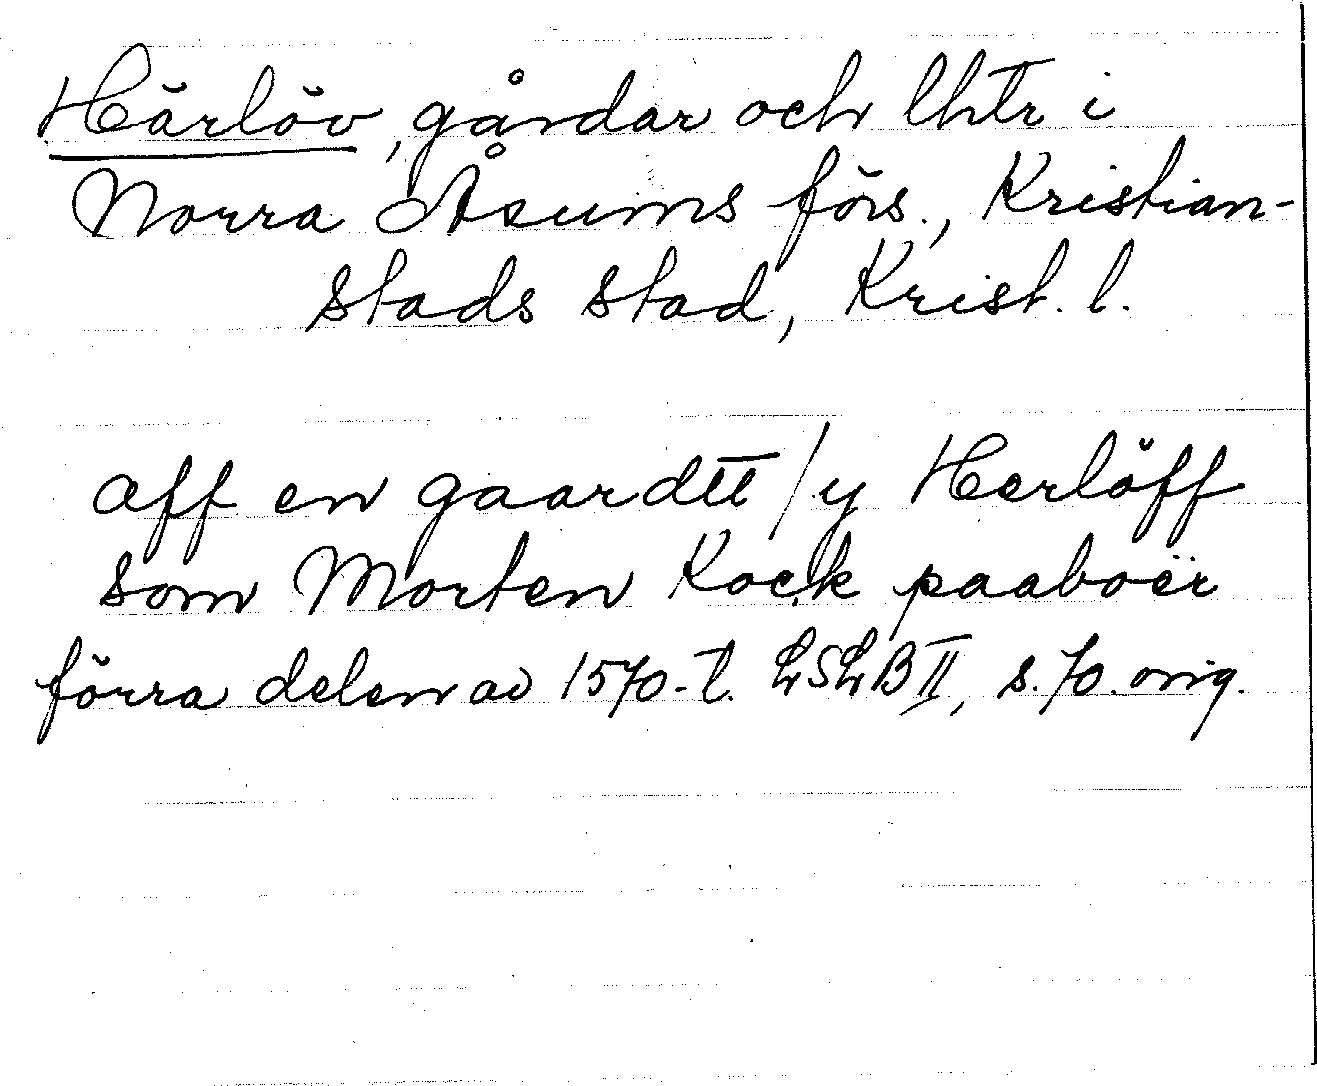 Härlöv, gårdar och lhtr i
Norra Åsums förs., Kristian-
stads stad, Krist. l.
aff en gaardtt / y Herlöff
som Morten Kock paaboër
förra delen av 1570-t. LSLB II, s. 70. orig.